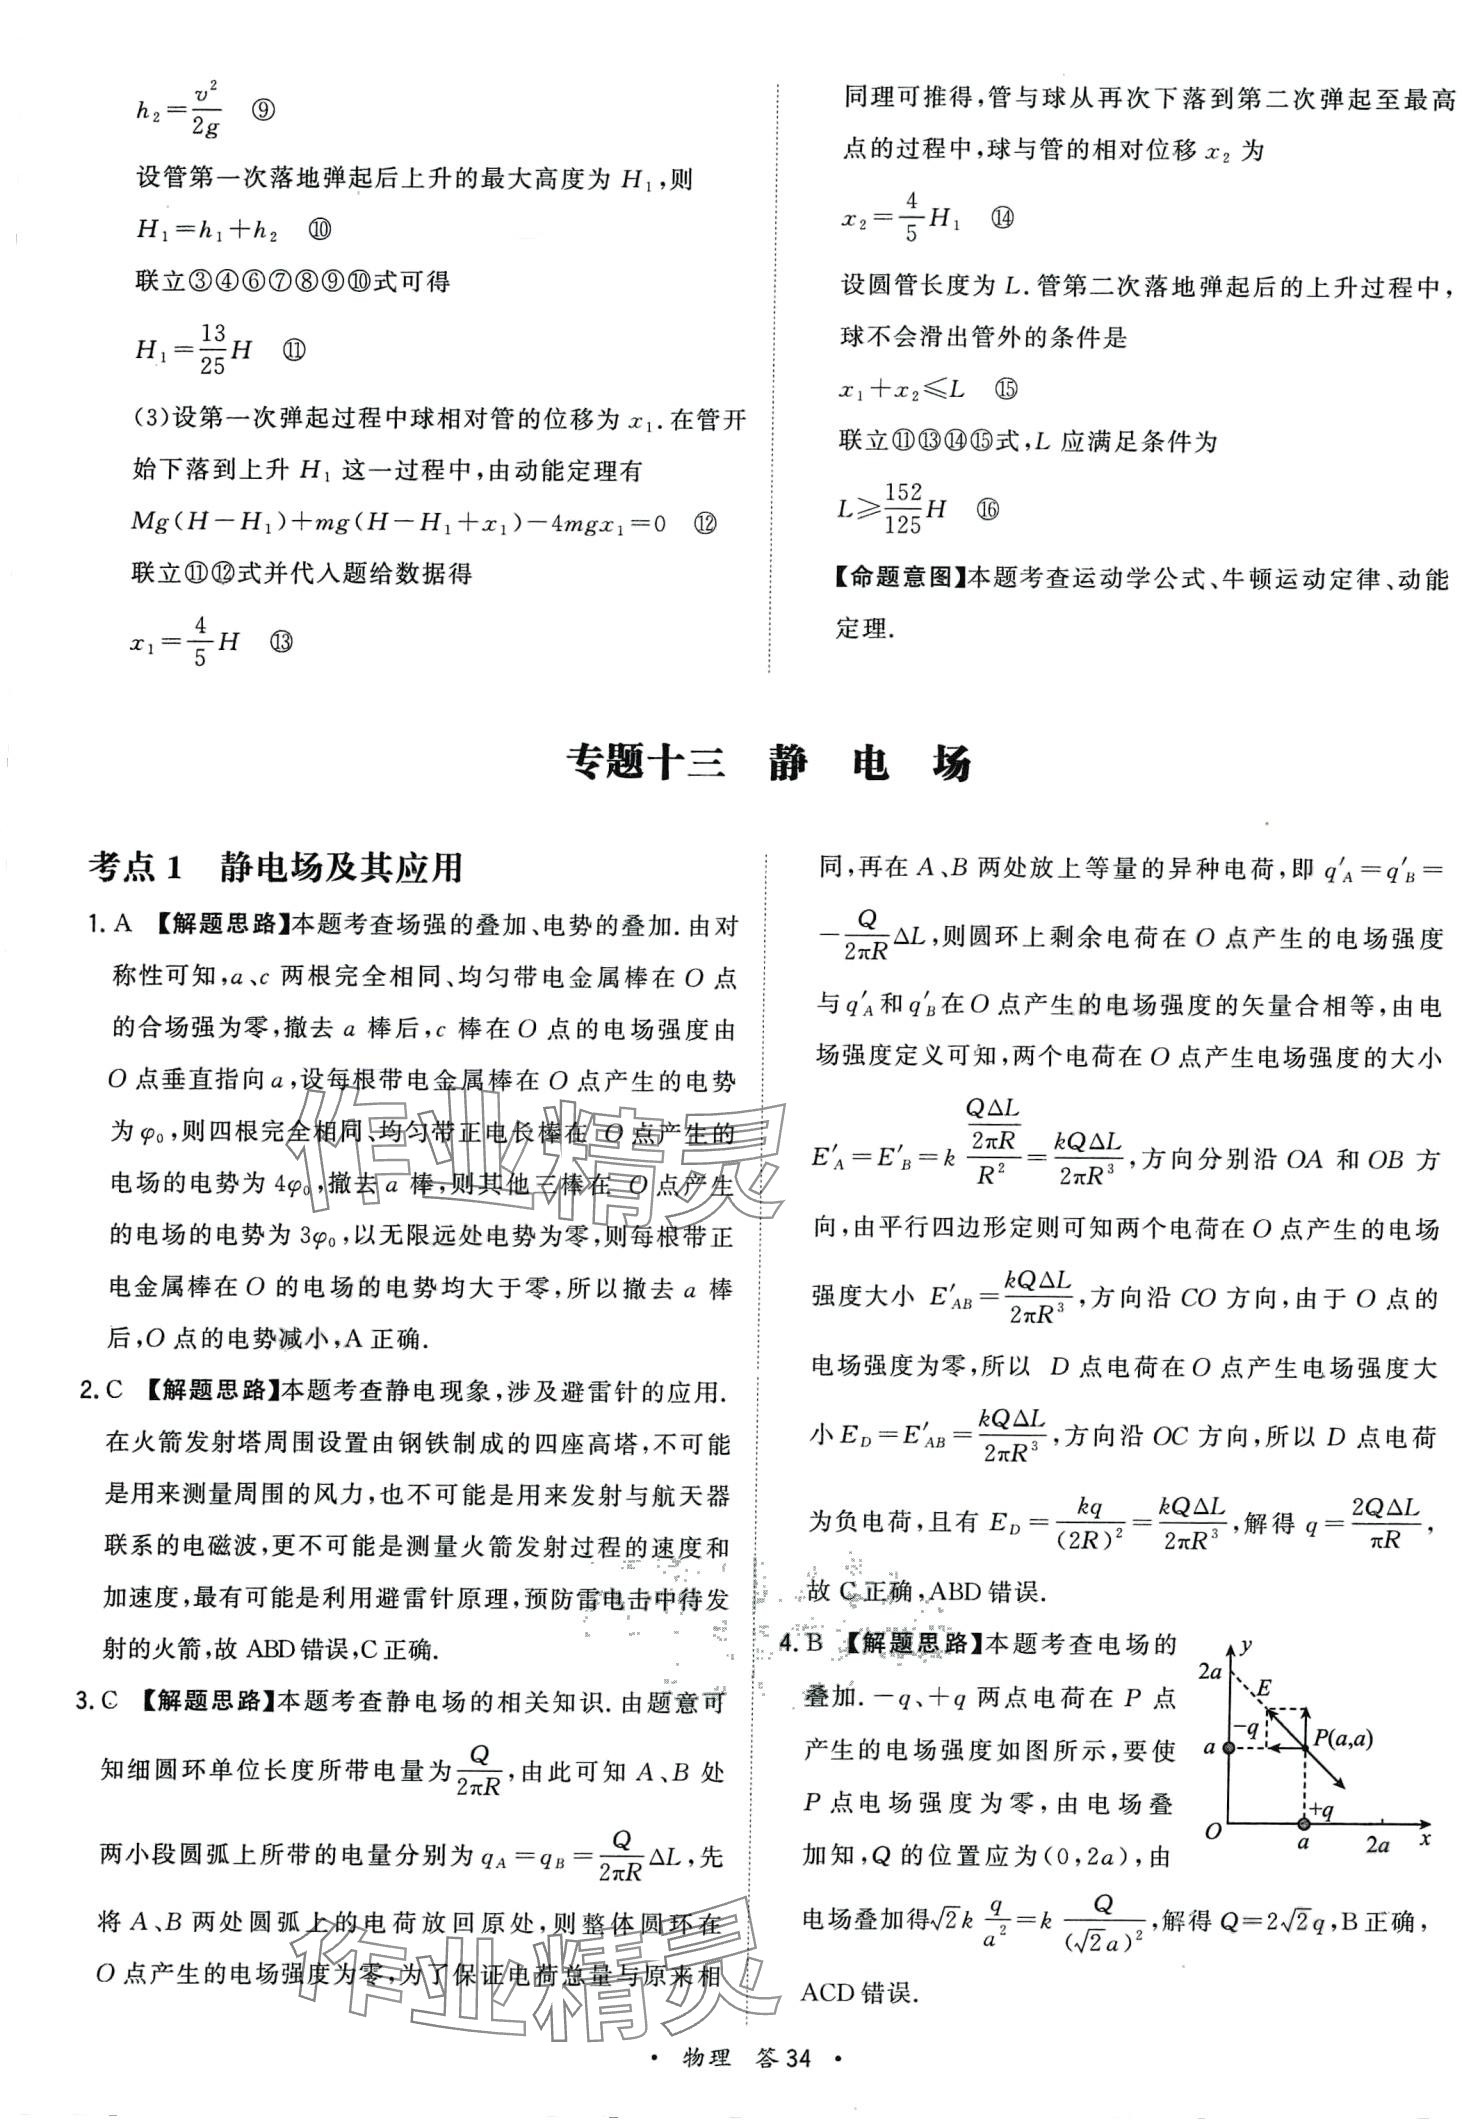 h₂=v²/2g ⑨
设管第一次落地弹起后上升的最大高度为 H₁,则
H₁=h₁+h₂ ⑩
联立③④⑥⑦⑧⑨⑩式可得
H₁=13/25 H ⑪
(3)设第一次弹起过程中球相对管的位移为 x₁.在管开
始下落到上升 H₁ 这一过程中,由动能定理有
Mg(H-H₁)+mg(H-H₁+x₁)-4mgx₁=0 ⑫
联立⑪⑫式并代入题给数据得
x₁=4/5 H ⑬
同理可推得,管与球从再次下落到第二次弹起至最高
点的过程中,球与管的相对位移 x₂ 为
x₂=4/5 H₁ ⑭
设圆管长度为 L.管第二次落地弹起后的上升过程中,
球不会滑出管外的条件是
x₁+x₂≤L ⑮
联立⑪⑬⑭⑮式,L 应满足条件为
L≥152/125 H ⑯
【命题意图】本题考查运动学公式、牛顿运动定律、动能
定理.
专题十三 静 电 场
考点 1 静电场及其应用
1. A 【解题思路】本题考查场强的叠加、电势的叠加.由对
称性可知,a、c 两根完全相同、均匀带电金属棒在 O 点
的合场强为零,撤去 a 棒后,c 棒在 O 点的电场强度由
O 点垂直指向 a,设每根带电金属棒在 O 点产生的电势
为 φ₀,则四根完全相同、均匀带正电长棒在 O 点产生的
电场的电势为 4φ₀,撤去 a 棒,则其他三棒在 O 点产生
的电场的电势为 3φ₀,以无限远处电势为零,则每根带正
电金属棒在 O 的电场的电势均大于零,所以撤去 a 棒
后,O 点的电势减小,A 正确.
2. C 【解题思路】本题考查静电现象,涉及避雷针的应用.
在火箭发射塔周围设置由钢铁制成的四座高塔,不可能
是用来测量周围的风力,也不可能是用来发射与航天器
联系的电磁波,更不可能是测量火箭发射过程的速度和
加速度,最有可能是利用避雷针原理,预防雷电击中待发
射的火箭,故 ABD 错误,C 正确.
3. C 【解题思路】本题考查静电场的相关知识.由题意可
知细圆环单位长度所带电量为 Q/2πR,由此可知 A、B 处
两小段圆弧上所带的电量分别为 q_A=q_B=Q/2πR ΔL,先
将 A、B 两处圆弧上的电荷放回原处,则整体圆环在
O 点产生的电场强度为零,为了保证电荷总量与原来相
同,再在 A、B 两处放上等量的异种电荷,即 q′_A=q′_B=
-Q/2πR ΔL,则圆环上剩余电荷在 O 点产生的电场强度
与 q′_A 和 q′_B 在 O 点产生的电场强度的矢量合相等,由电
场强度定义可知,两个电荷在 O 点产生电场强度的大小
E′_A=E′_B=k (QΔL/2πR)/R²=kQΔL/2πR³,方向分别沿 OA 和 OB 方
向,由平行四边形定则可知两个电荷在 O 点产生的电场
强度大小 E′_AB=kQΔL/2πR³,方向沿 CO 方向,由于 O 点的
电场强度为零,所以 D 点电荷在 O 点产生电场强度大
小 E_D=E′_AB=kQΔL/2πR³,方向沿 OC 方向,所以 D 点电荷
为负电荷,且有 E_D=kq/(2R)²=kQΔL/2πR³,解得 q=2QΔL/πR,
故 C 正确,ABD 错误.
4. B 【解题思路】本题考查电场的
叠加.-q、+q 两点电荷在 P 点
产生的电场强度如图所示,要使
P 点电场强度为零,由电场叠
加知,Q 的位置应为(0,2a),由
电场叠加得√2k q/a²=k Q/(√2a)²,解得 Q=2√2q,B 正确,
ACD 错误.
y
2a
E
-q
a
P(a,a)
+q
O
a
2a
x
· 物理 答 34 ·
作业精灵
作业精灵